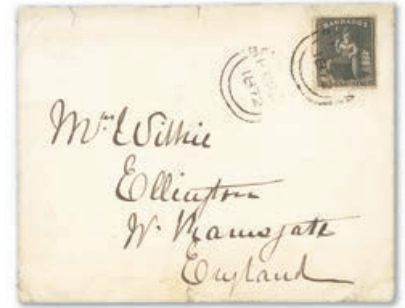 BARBADOS
1872
Mrs. Wilkie
Ellington
Nr. Ramsgate
England